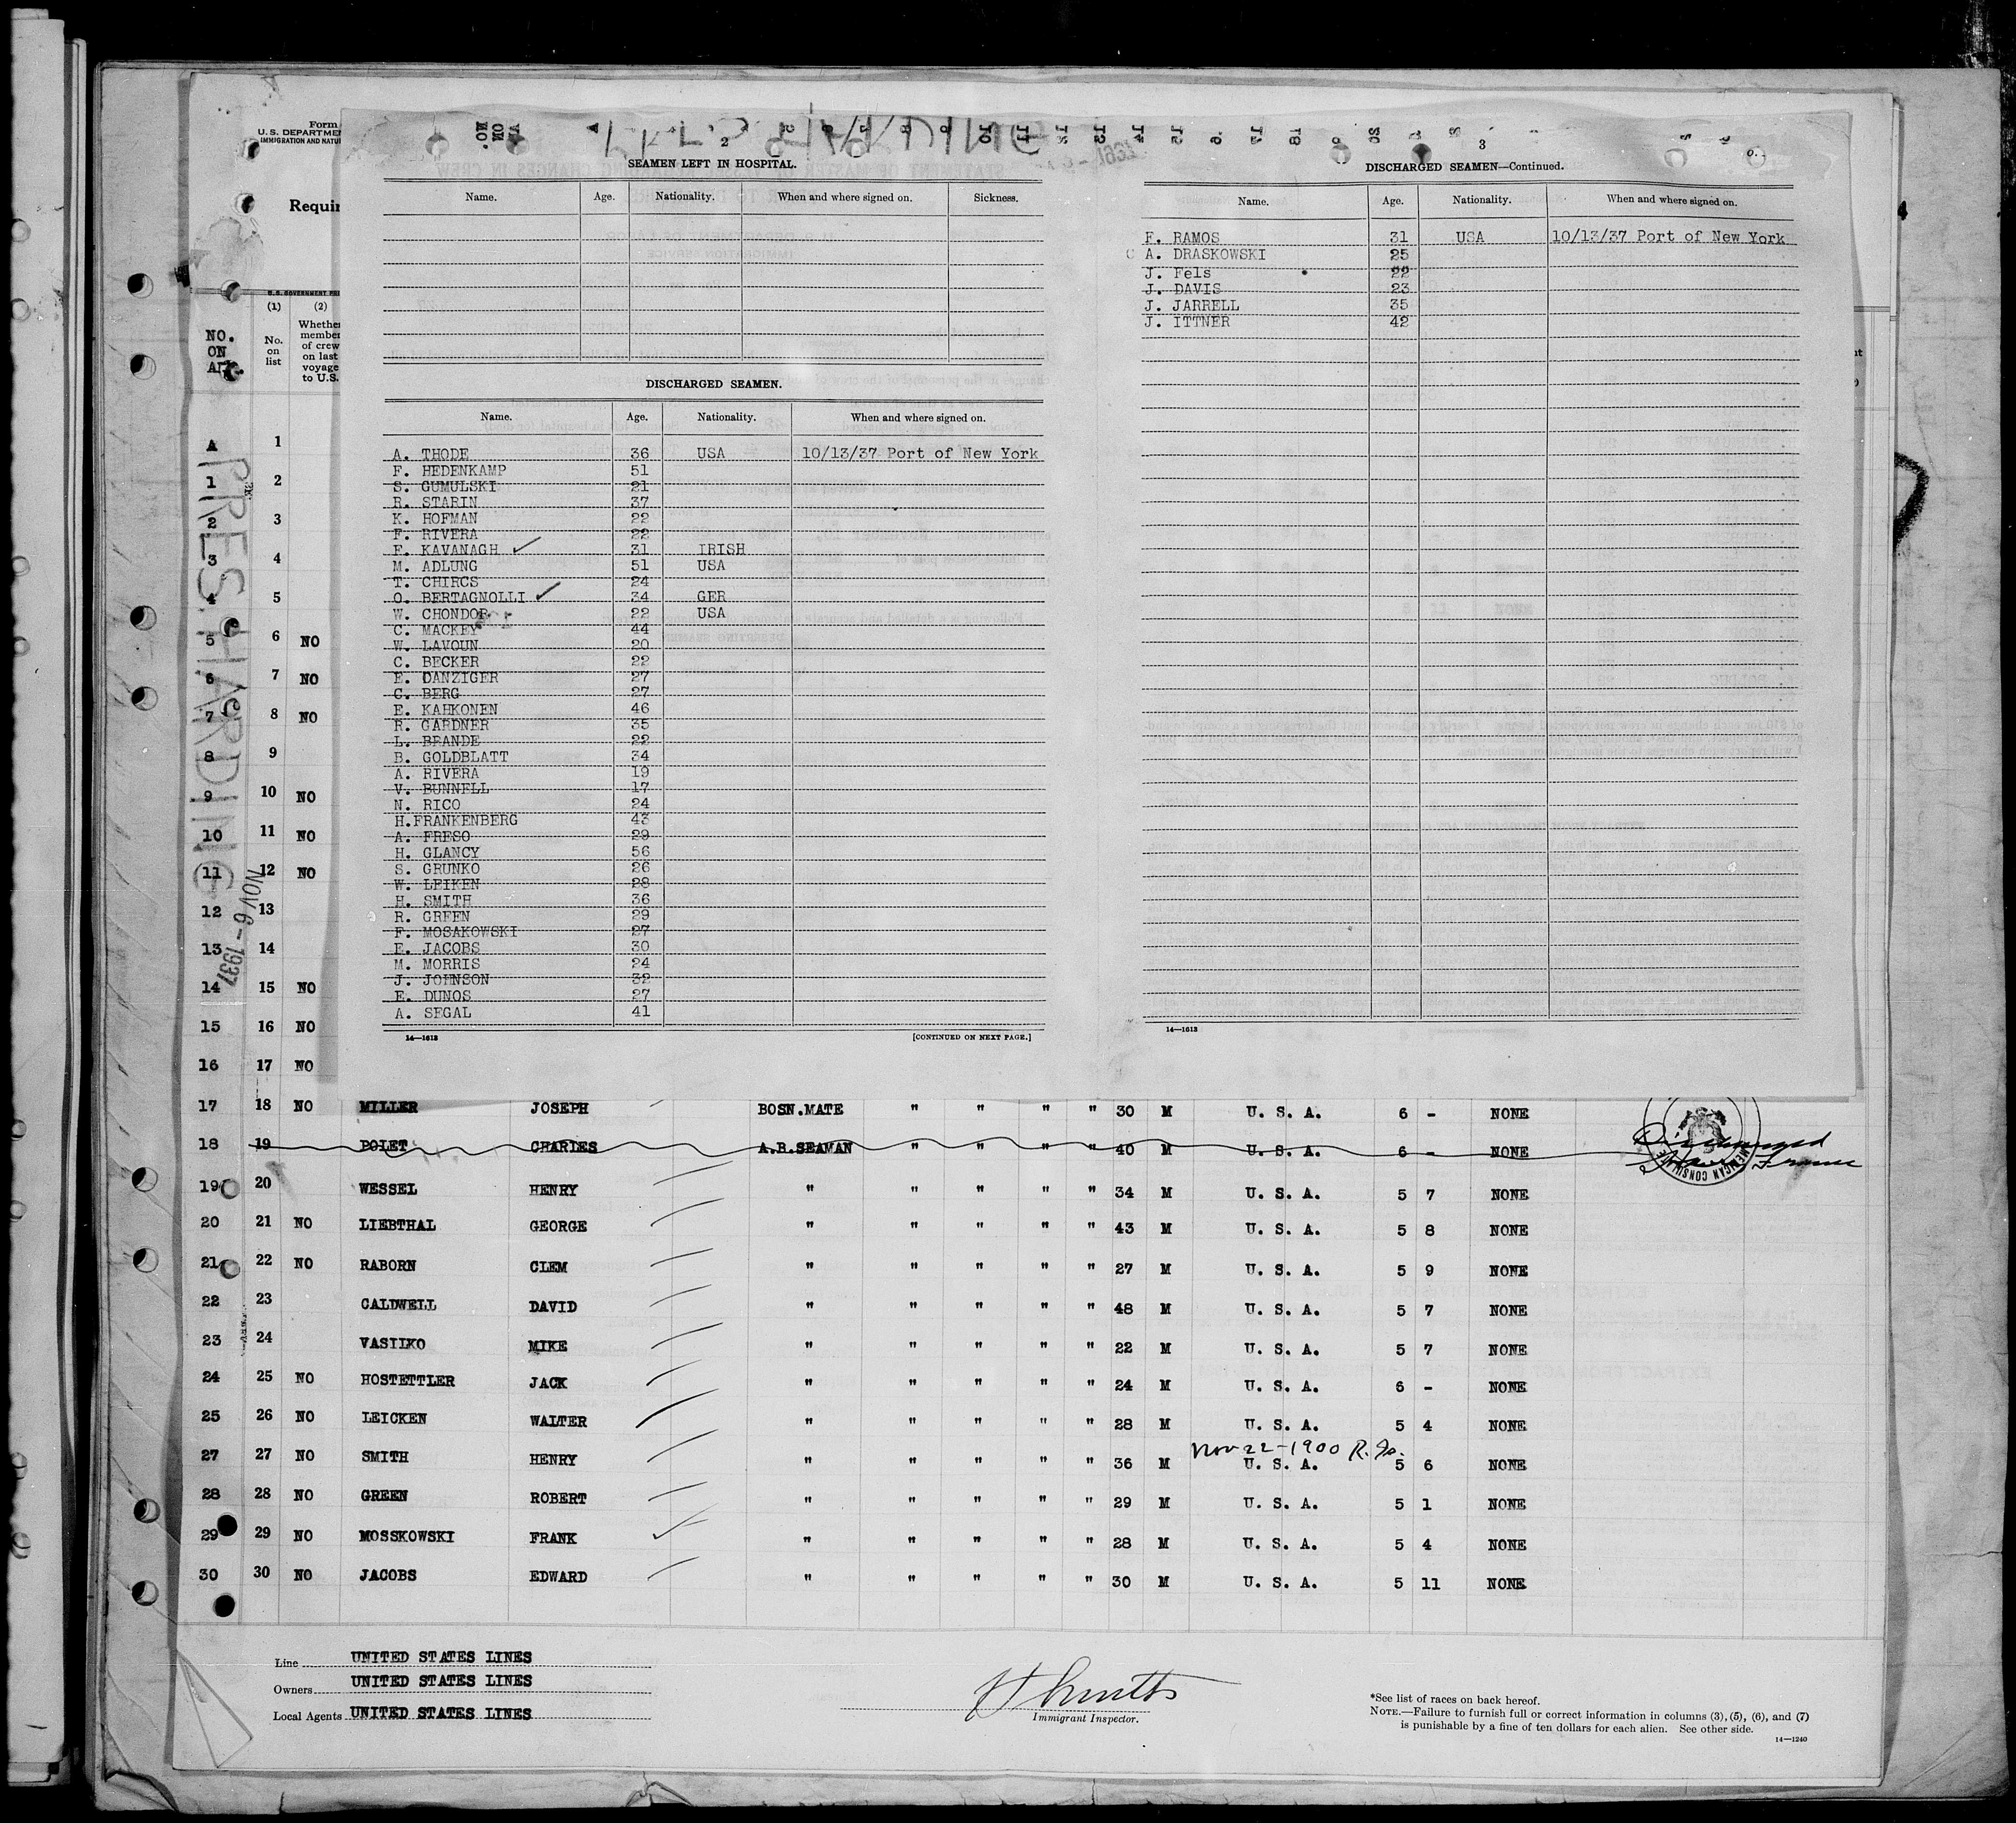 Form
U. S. DEPARTME
IMMIGRATION AND NATU
Requir
(1) (2)
No. on list
Whether member of crew on last voyage to U.S.
NO. ON
PRES. HARDING
NOV 6 - 1937
2
SEAMEN LEFT IN HOSPITAL.
Name. Age. Nationality. When and where signed on. Sickness.
DISCHARGED SEAMEN.
Name. Age. Nationality. When and where signed on.
A. THODE 36 USA 10/13/37 Port of New York
F. HEDENKAMP 51
S. GUMULSKI 21
R. STARIN 37
K. HOFMAN 22
F. RIVERA 22
F. KAVANAGH ✓ 31 IRISH
M. ADLUNG 51 USA
T. CHIRCS 24
O. BERTAGNOLLI ✓ 34 GER
W. CHONDOR 22 USA
C. MACKEY 44
W. LAVOUN 20
C. BECKER 22
E. DANZIGER 27
C. BERG 27
E. KAHKONEN 46
R. GARDNER 35
L. BRANDE 22
B. GOLDBLATT 34
A. RIVERA 19
V. BUNNELL 17
N. RICO 24
H.FRANKENBERG 43
A. FRESO 29
H. GLANCY 56
S. GRUNKO 26
W. LEIKEN 28
H. SMITH 36
R. GREEN 29
F. MOSAKOWSKI 27
E. JACOBS 30
M. MORRIS 24
J. JOHNSON 32
E. DUNOS 27
A. SEGAL 41
14—1613 [CONTINUED ON NEXT PAGE.]
3
DISCHARGED SEAMEN—Continued.
Name. Age. Nationality. When and where signed on.
F. RAMOS 31 USA 10/13/37 Port of New York
A. DRASKOWSKI 25
J. Fels 22
J. DAVIS 23
J. JARRELL 35
J. ITTNER 42
14—1613
A 1
1 2
2 3
3 4
4 5
5 6 NO
6 7 NO
7 8 NO
8 9
9 10 NO
10 11 NO
11 12 NO
12 13
13 14
14 15 NO
15 16 NO
16 17 NO
17 18 NO MILLER JOSEPH BOSN.MATE " " " " 30 M U. S. A. 6 - NONE
18 19 POLET CHARLES A.B.SEAMAN " " " " 40 M U. S. A. 6 - NONE Discharged France
19 20 WESSEL HENRY " " " " " 34 M U. S. A. 5 7 NONE
20 21 NO LIEBTHAL GEORGE " " " " " 43 M U. S. A. 5 8 NONE
21 22 NO RABORN CLEM " " " " " 27 M U. S. A. 5 9 NONE
22 23 CALDWELL DAVID " " " " " 48 M U. S. A. 5 7 NONE
23 24 VASILKO MIKE " " " " " 22 M U. S. A. 5 7 NONE
24 25 NO HOSTETTLER JACK " " " " " 24 M U. S. A. 6 - NONE
25 26 NO LEICKEN WALTER " " " " " 28 M U. S. A. 5 4 NONE
Nov 22-1900
27 27 NO SMITH HENRY " " " " " 36 M U. S. A. 5 6 NONE
28 28 NO GREEN ROBERT " " " " " 29 M U. S. A. 5 1 NONE
29 29 NO MOSSKOWSKI FRANK " " " " " 28 M U. S. A. 5 4 NONE
30 30 NO JACOBS EDWARD " " " " " 30 M U. S. A. 5 11 NONE
Line UNITED STATES LINES
Owners UNITED STATES LINES
Local Agents UNITED STATES LINES
Immigrant Inspector.
*See list of races on back hereof.
NOTE.—Failure to furnish full or correct information in columns (3), (5), (6), and (7)
is punishable by a fine of ten dollars for each alien. See other side.
14—1240